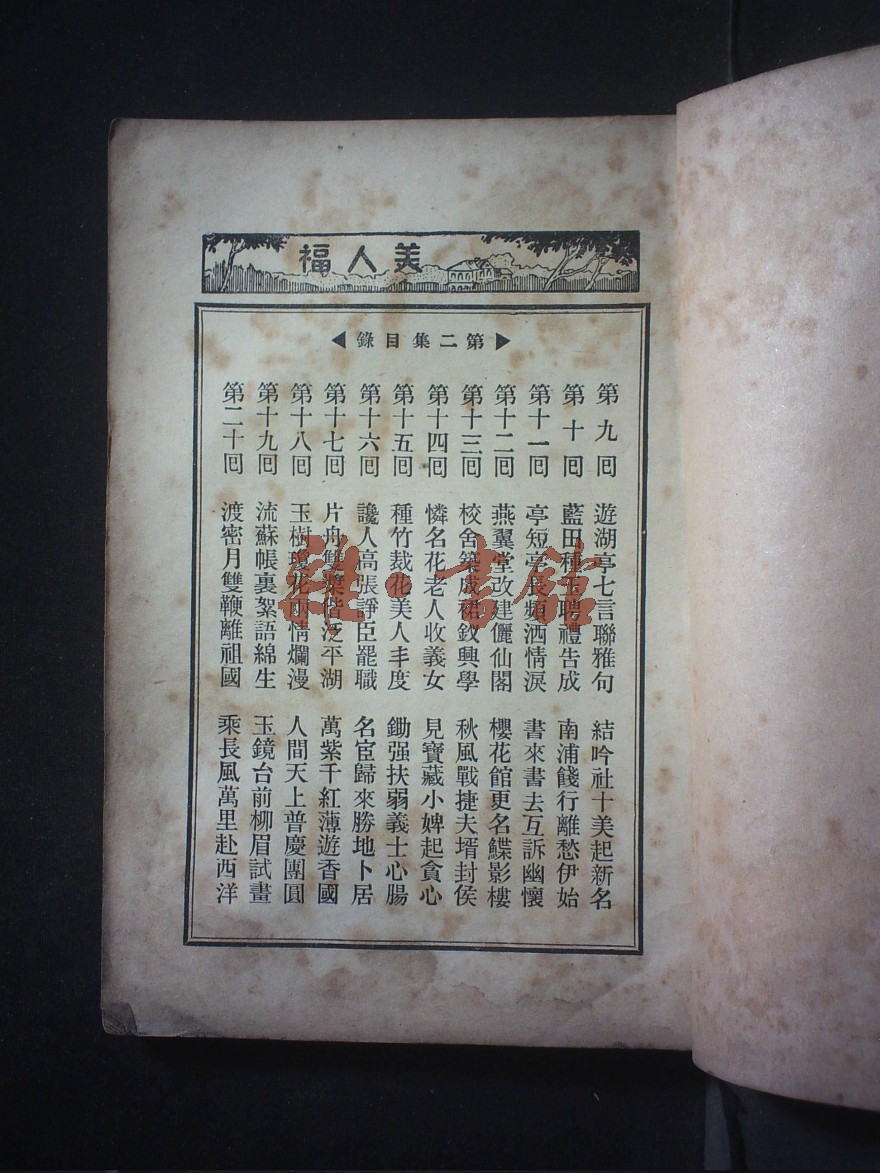 美人福
第二集目錄
第九回 遊湖亭七言聯雅句 結吟社十美起新名
第十回 藍田種玉聘禮告成 南浦餞行離愁伊始
第十一回 亭短亭長頻洒情淚 書來書去互訴幽懷
第十二回 燕翼堂改建儷仙閣 櫻花館更名鰈影樓
第十三回 校舍築成裙釵興學 秋風戰捷夫壻封侯
第十四回 憐名花老人收義女 見寶藏小婢起貪心
第十五回 種竹裁花美人丰度 鋤强扶弱義士心腸
第十六回 讒人高張諍臣罷職 名宦歸來勝地卜居
第十七回 片舟雙槳偕泛平湖 萬紫千紅薄遊香國
第十八回 玉樹瓊花兩情爛漫 人間天上普慶團圓
第十九回 流蘇帳裏絮語綿生 玉鏡台前柳眉試畫
第二十回 渡密月雙鞭離祖國 乘長風萬里赴西洋